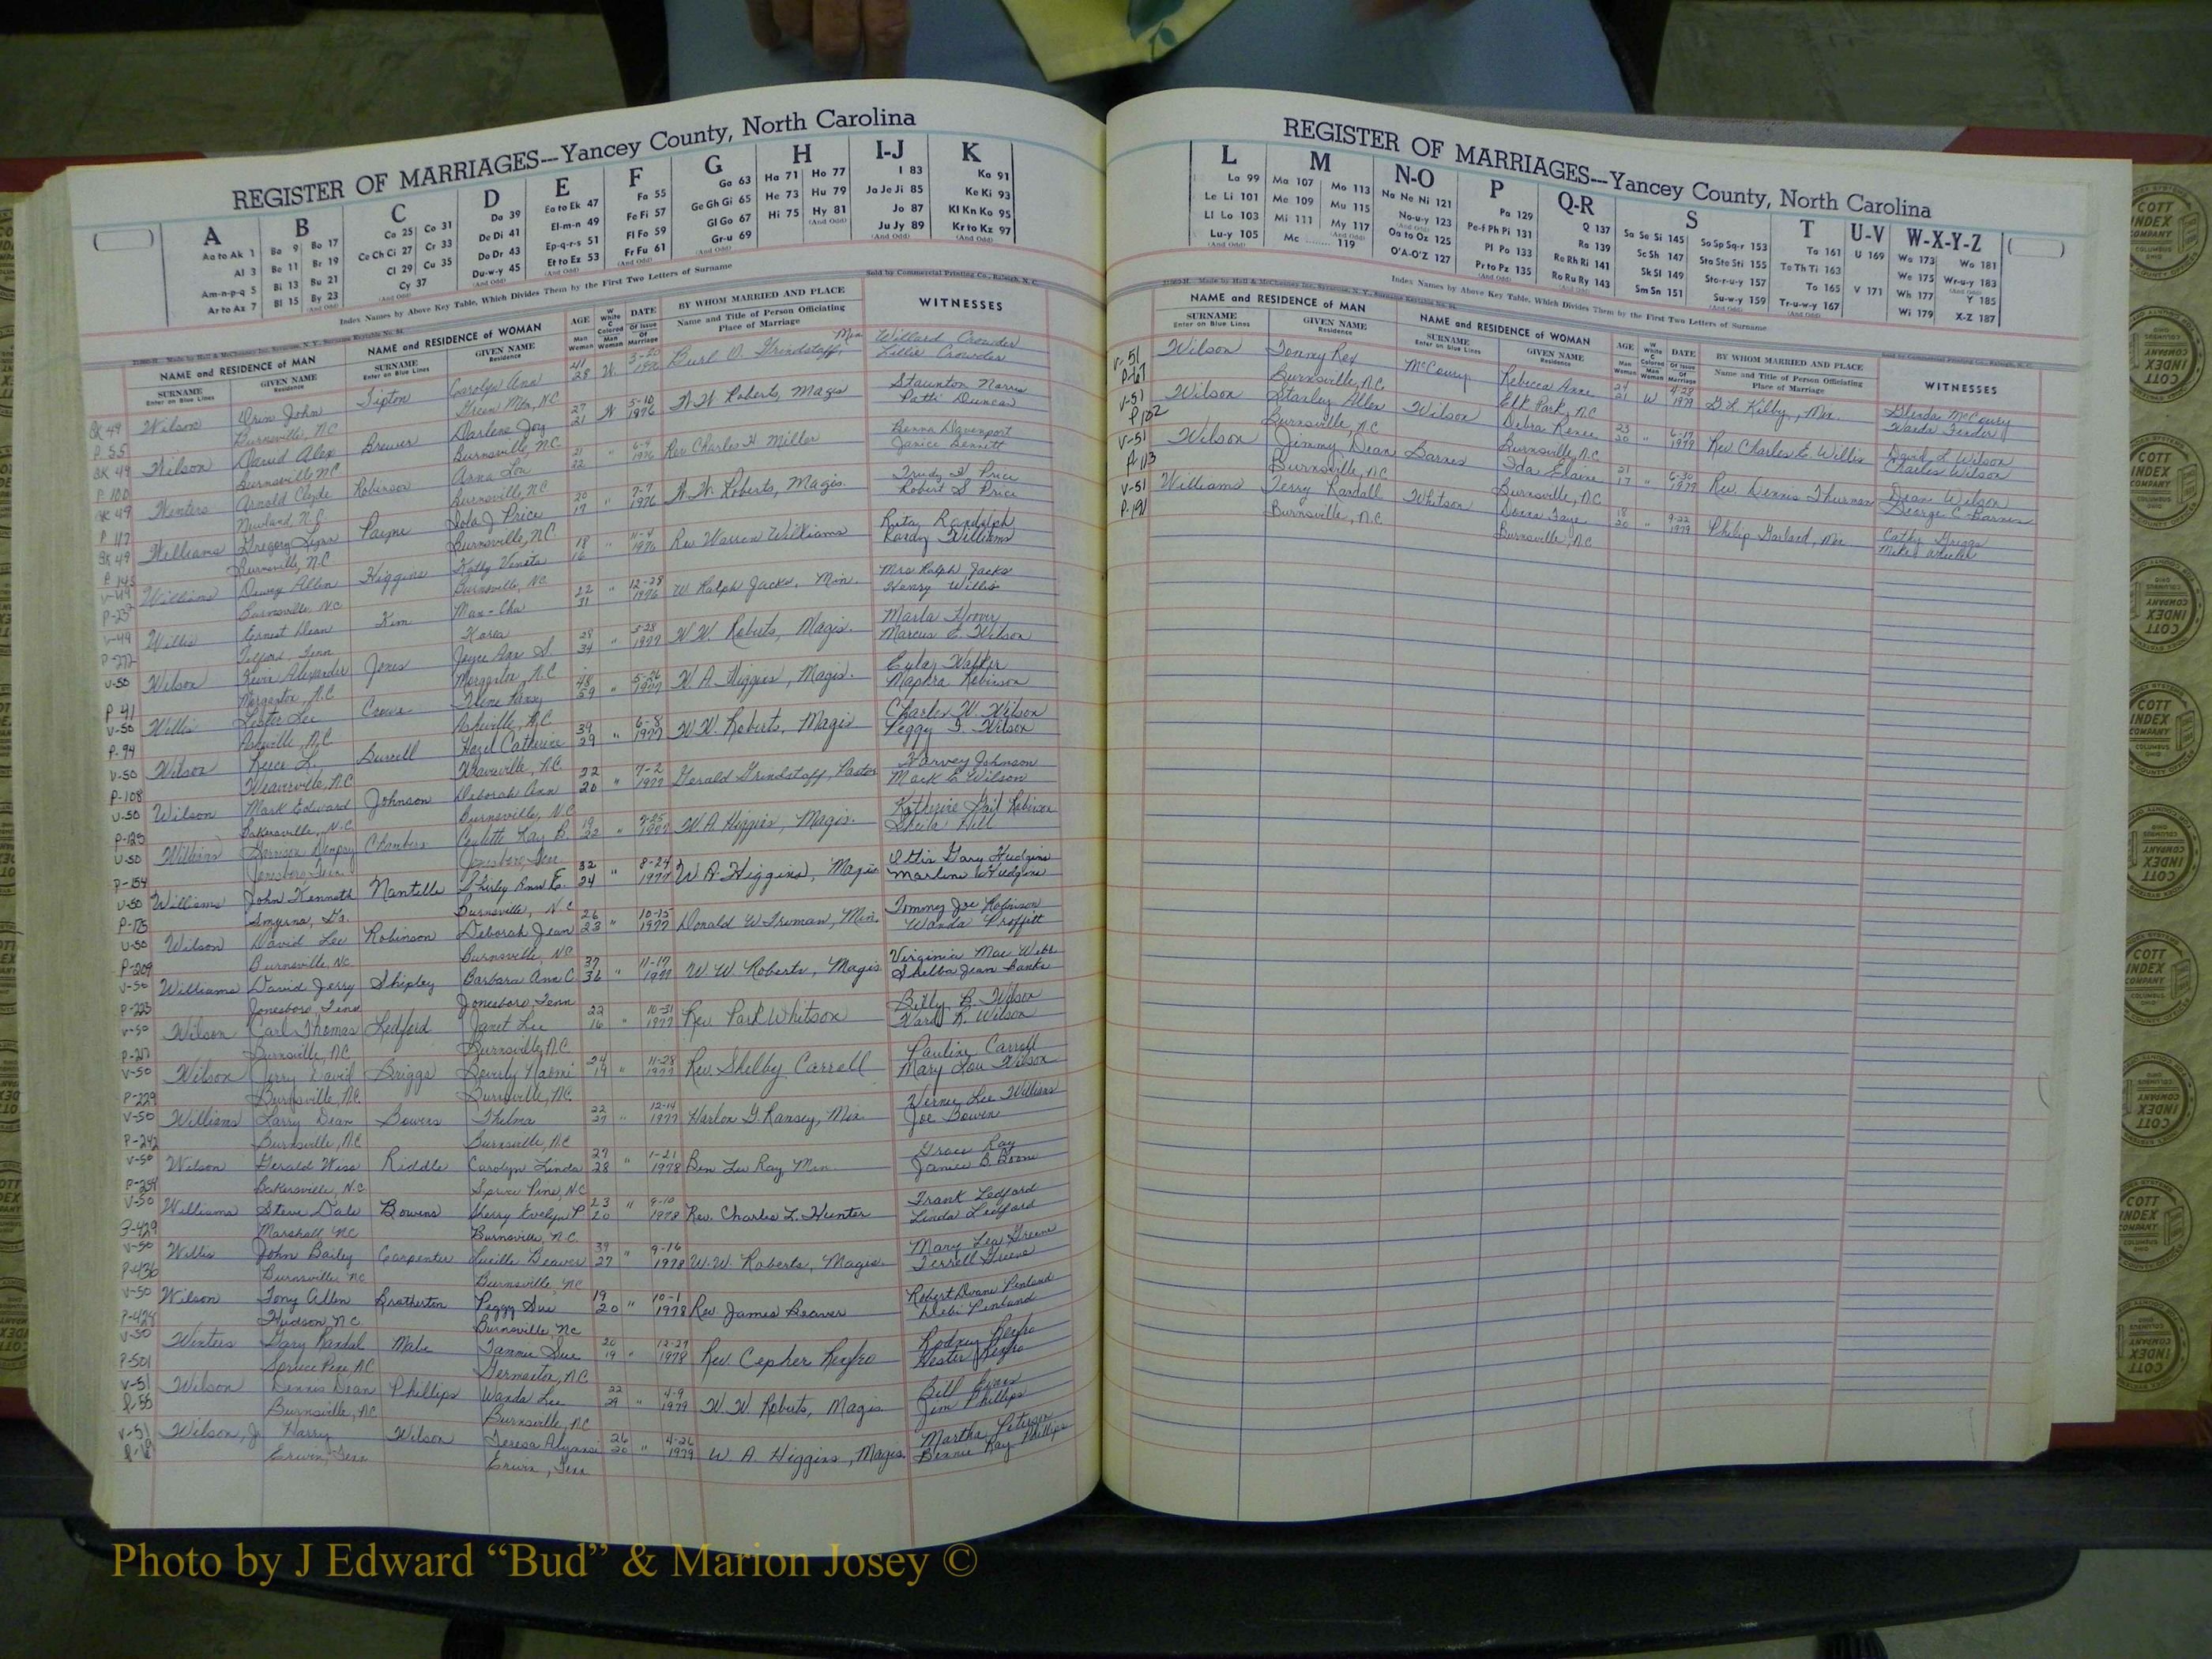 REGISTER OF MARRIAGES---Yancey County, North Carolina
A B C D E F G H I-J K
Aa to Ak 1 Ba 9 Bo 17 Ca 25 Co 31 Da 39 Ea to Ek 47 Fa 55 Ga 63 Ha 71 Ho 77 I 83 Ka 91
Al 3 Be 11 Br 19 Ce Ch Ci 27 Cr 33 De Di 41 El-m-n 49 Fe Fi 57 Ge Gh Gi 65 He 73 Hu 79 Ja Je Ji 85 Ke Ki 93
Am-n-p-q 5 Bi 13 Bu 21 Cl 29 Cu 35 Do Dr 43 Ep-q-r-s 51 Fl Fo 59 Gl Go 67 Hi 75 Hy 81 Jo 87 Kl Kn Ko 95
Ar to Az 7 Bl 15 By 23 Cy 37 Du-w-y 45 Et to Ez 53 Fr Fu 61 Gr-u 69 Ju Jy 89 Kr to Kz 97
Index Names by Above Key Table, Which Divides Them by the First Two Letters of Surname
Sold by Commercial Printing Co., Raleigh, N. C.
NAME and RESIDENCE of MAN NAME and RESIDENCE of WOMAN AGE DATE BY WHOM MARRIED AND PLACE WITNESSES
SURNAME Enter on Blue Lines GIVEN NAME Residence SURNAME Enter on Blue Lines GIVEN NAME Residence Man Woman W White C Colored Man Woman Of Issue Of Marriage Name and Title of Person Officiating Place of Marriage
BK 49 Wilson Orin John Tipton Carolyn Ann 41 28 W. 3-20 Burl D. Grindstaff, Min Willard Crowder
P. 55 Burnsville, NC Green Mtn, NC Lillie Crowder
BK 49 Wilson David Alex Brewer Darlene Joy 27 21 W 5-10 1976 W W Roberts, Magis Staunton Norris
P 100 Burnsville NC Burnsville, NC Patti Duncan
BK 49 Winters Arnold Clyde Robinson Anna Lou 21 22 " 6-4 1976 Rev Charles H Miller Benna Davenport
P 117 Newland, N.C. Burnsville, NC Janice Bennett
BK 49 Williams Gregory Payne Iola J Price 20 19 " 7-7 1976 W. W. Roberts, Magis. Trudy H Price
P 145 Burnsville, N.C Burnsville, NC Robert S Price
V-49 Williams Dewey Allen Higgins Kathy Veneta 18 16 " 11-4 1976 Rev Warren Williams Ruta Randolph
P-237 Burnsville, NC Burnsville, NC Randy Williams
V-49 Willis Ernest Dean Kim Man-Cha 22 31 " 12-28 1976 W Ralph Jacks, Min. Mrs Ralph Jacks
P-272 Telford, Tenn Korea Henry Willis
V-50 Wilson Kevin Alexander Jones Joyce Ann S. 28 34 " 3-28 1977 W.W. Roberts, Magis. Marla Hoover
P 41 Morganton, N.C Morganton, N.C Marcus E. Wilson
V-50 Willis Lester Lee 48 59 " 5-26 1977 W. A. Higgins, Magis. Eulas Walker
P-94 Asheville, N.C. Asheville, N.C. Maphra Robinson
V-50 Wilson Reece L. Burrell Hazel Catherine 39 29 " 6-8 1977 W.W. Roberts, Magis Charles W. Wilson
P-108 Weaverville, N.C Weaverville, N.C Peggy J. Wilson
V-50 Wilson Mark Edward Johnson Deborah Ann 22 20 " 7-2 1977 Gerald Grindstaff, Pastor Harvey Johnson
P-125 Bakersville, N.C Burnsville, N.C Mark E Wilson
V-50 Williams Garrison Dempsy Chambers Coylette Kay B. 19 22 " 1977 W.A. Higgins, Magis. Katherine Gail Robinson
P-154 Jonesboro, Tenn. Jonesboro, Tenn Sheila Hill
V-50 Williams John Kenneth Nantelle Shirley Ann E. 32 24 " 8-24 1977 W.A. Higgins, Magis Ottis Gary Hudgins
P-175 Smyrna, Ga. Burnsville, N.C Marlene Hudgins
V-50 Wilson David Lee Robinson Deborah Jean 26 23 " 10-15 1977 Donald W. Truman, Min. Tommy Joe Robinson
P-209 Burnsville, NC Burnsville, NC Wanda Proffitt
V-50 Williams David Jerry Shipley Barbara Ann C. 37 36 " 11-17 1977 W W Roberts, Magis. Virginia Mae Webb
P-223 Jonesboro, Tenn Jonesboro, Tenn Shelba Jean Banks
V-50 Wilson Carl Thomas Ledford Janet Lee 22 16 " 10-31 1977 Rev Park Whitson Billy B. Wilson
P-217 Burnsville, N.C. Burnsville, N.C. Ward R. Wilson
V-50 Wilson Jerry David Briggs Beverly Naomi 24 19 " 11-28 1977 Rev. Shelby Carroll Pauline Carroll
P-229 Burnsville, NC Burnsville, NC. Mary Lou Wilson
V-50 Williams Larry Dean Bowers Thelma 22 27 " 12-14 1977 Harlon G. Ransey, Min. Vernie Lee Williams
P-242 Burnsville, N.C Burnsville, NC Joe Bowen
V-50 Wilson Gerald Wess Riddle Carolyn Linda 27 28 " 1-21 1978 Ben Lee Ray Min Grace Ray
P-254 Bakersville, N.C. Spruce Pine, N.C James B. Boone
V-50 Williams Steve Dale Bowens Sherry Evelyn P 23 20 " 9-10 1978 Rev. Charles L. Hunter Frank Ledford
P-429 Marshall NC Burnsville, N.C. Linda Ledford
V-50 Willis John Bailey Carpenter Lucille Beaver 39 27 " 9-16 1978 W.W. Roberts, Magis. Mary Lea Greene
P-436 Burnsville NC Burnsville, NC Terrell Greene
V-50 Wilson Tony Allen Brotherton Peggy Sue 19 20 " 10-1 1978 Rev. James Beaver Robert Duane Penland
P-428 Hudson, N.C Burnsville, NC Debi Penland
V-50 Winters Gary Randal Mabe Tammie Sue 20 19 " 12-29 1978 Rev Cepher Renfro Rodney Renfro
P-501 Spruce Pine, NC Germanton, N.C Hester Renfro
V-51 Wilson Dennis Dean Phillips Wanda Lee 22 29 " 4-9 1979 W. W. Roberts, Magis Bill
P-55 Burnsville, NC Burnsville, NC Jim Phillips
V-51 Wilson, Jr Harry Wilson Teresa 26 20 " 4-26 1979 W A Higgins, Magis. Martha Peterson
P-69 Erwin, Tenn Erwin, Tenn Bennie Ray Phillips
REGISTER OF MARRIAGES---Yancey County, North Carolina
L M N-O P Q-R S T U-V W-X-Y-Z
La 99 Ma 107 Mo 113 Na Ne Ni 121 Pa 129 Q 137 Sa Se Si 145 So Sp Sq-r 153 Ta 161 U 169 Wa 173 Wo 181
Le Li 101 Me 109 Mu 115 No-u-y 123 Pe-f Ph Pi 131 Ra 139 Sc Sh 147 Sta Ste Sti 155 Te Th Ti 163 We 175 Wr-u-y 183
Ll Lo 103 Mi 111 My 117 Oa to Oz 125 Pl Po 133 Re Rh Ri 141 Sk Sl 149 Sto-r-u-y 157 To 165 V 171 Wh 177 Y 185
Lu-y 105 Mc 119 O'A-O'Z 127 Pr to Pz 135 Ro Ru Ry 143 Sm Sn 151 Su-w-y 159 Tr-u-w-y 167 Wi 179 X-Z 187
Index Names by Above Key Table, Which Divides Them by the First Two Letters of Surname
NAME and RESIDENCE of MAN NAME and RESIDENCE of WOMAN AGE DATE BY WHOM MARRIED AND PLACE WITNESSES
SURNAME Enter on Blue Lines GIVEN NAME Residence SURNAME Enter on Blue Lines GIVEN NAME Residence Man Woman W White C Colored Man Woman Of Issue Of Marriage Name and Title of Person Officiating Place of Marriage
V-51 Wilson Tommy Rex McCoury Rebecca Anne 24 21 W 4-28 1979 G. L. Kilby, Min. Glenda McCoury
P-67 Burnsville, N.C. Elk Park, N.C Wanda Fender
V-51 Wilson Stanley Allen Wilson Debra Renee 23 20 " 6-17 1979 Rev Charles E. Willis David L. Wilson
P102 Burnsville, N.C Burnsville, N.C Charles Wilson
V-51 Wilson Jimmy Dean Barnes Ida Elaine 21 17 " 6-30 1979 Rev. Dennis Thurman Dean Wilson
P-113 Burnsville, N.C Burnsville, N.C George C Barnes
V-51 Williams Terry Randall Whitson Donna Faye 18 20 " 9-22 1979 Philip Garland, Min Cathy Griggs
P-191 Burnsville, N.C. Burnsville, N.C Mike Wheeler
COTT INDEX COMPANY COLUMBUS OHIO
Photo by J Edward “Bud” & Marion Josey ©